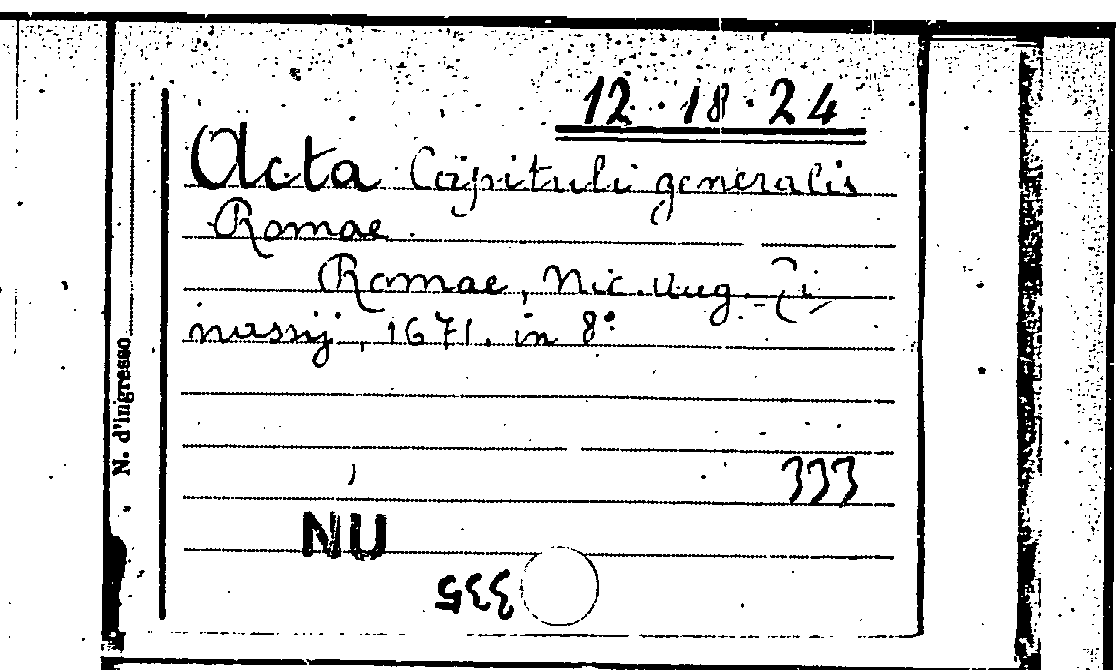 12 · 18 · 24
Acta Capituli generalis
Romae.
Romae, Nic. Aug. Ti
nassij, 1671. in 8°
N. d'ingresso
333
NU
335